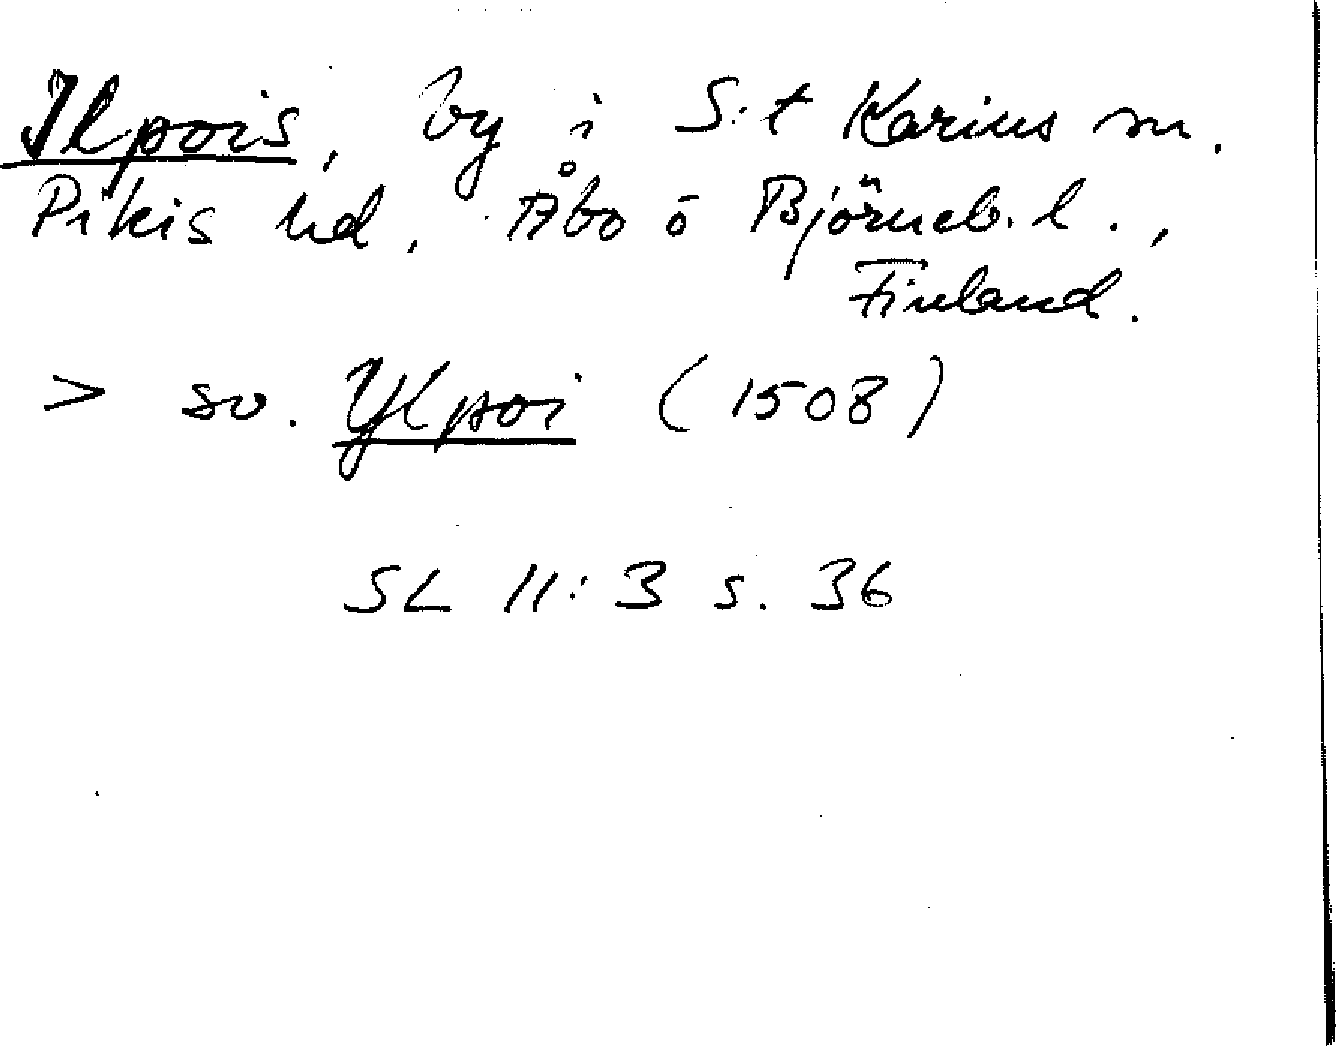 Ilpois, by i S:t Karins sn.
Pikis hd, Åbo o Björneb. l.,
Finland.
> sv. Ylpoi (1508)
SL 11:3 s. 36